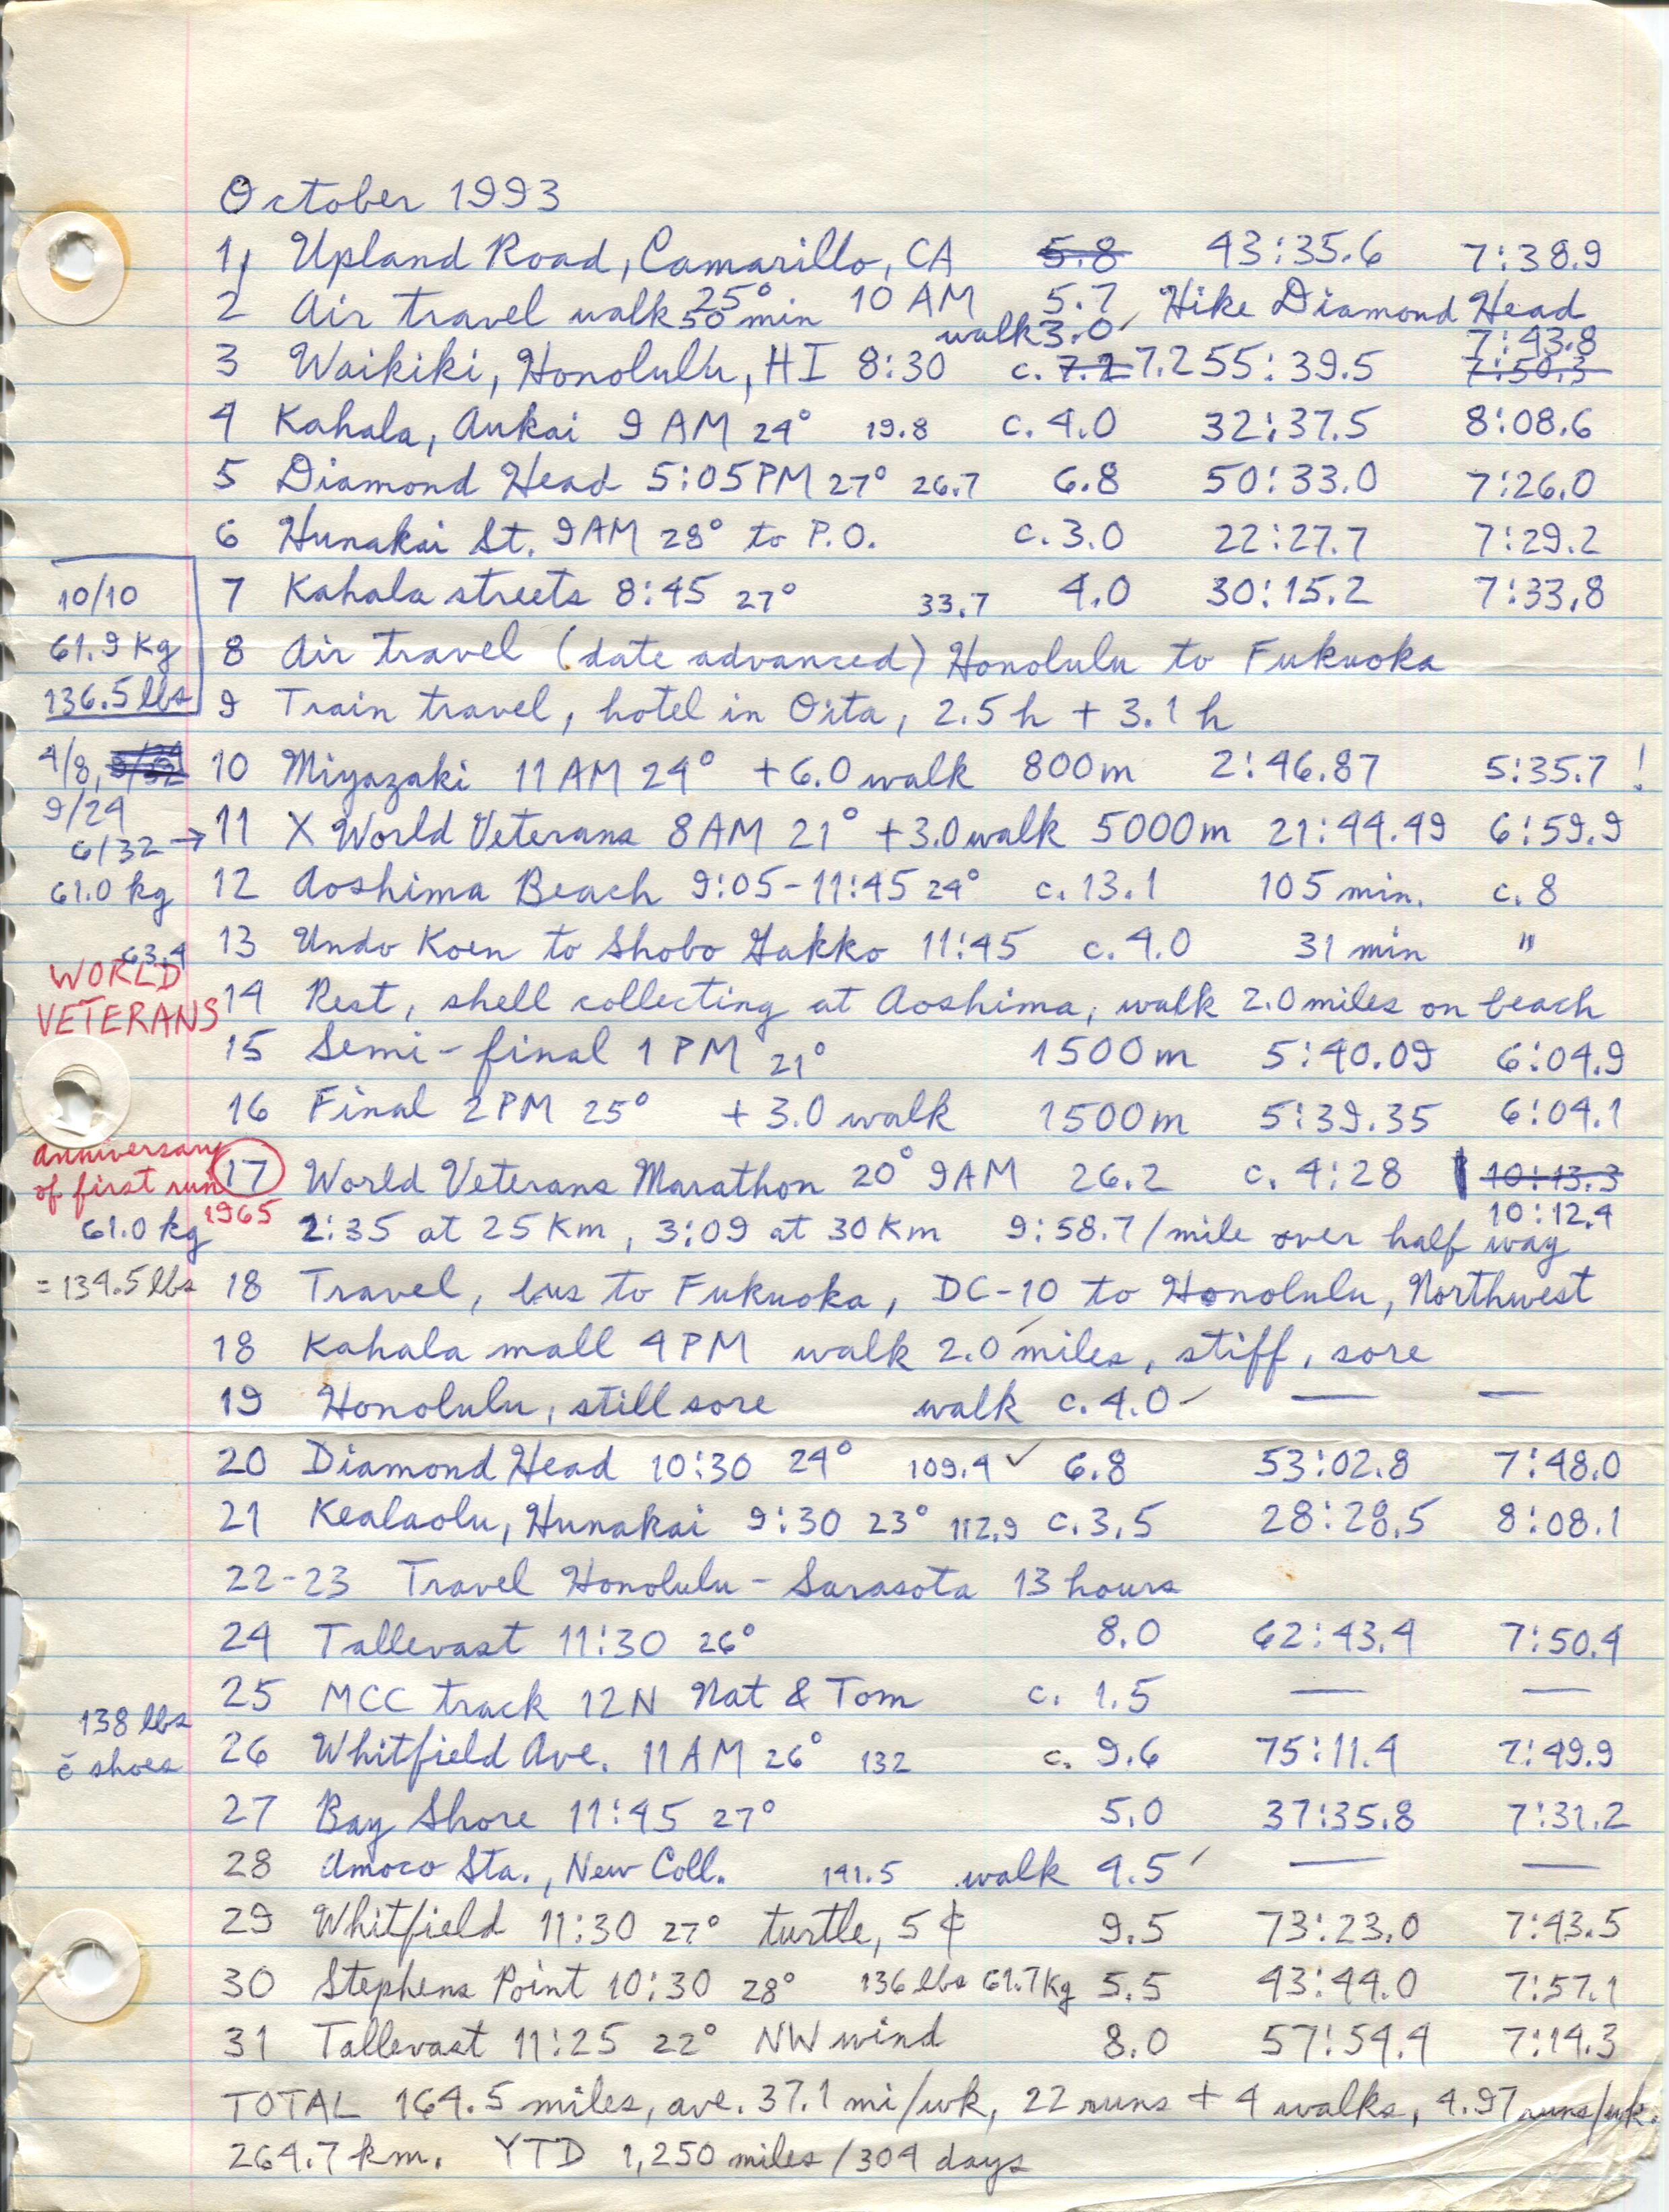 October 1993
1, Upland Road, Camarillo, CA 5.8 43:35.6 7:38.9
2 Air travel walk 50 min 25° 10 AM 5.7 Hike Diamond Head
walk 3.0 7:43.8
3 Waikiki, Honolulu, HI 8:30 c. 7.2 7.2 55:39.5 7:50.3
4 Kahala, Aukai 9 AM 24° 19.8 c. 4.0 32:37.5 8:08.6
5 Diamond Head 5:05 PM 27° 26.7 6.8 50:33.0 7:26.0
6 Hunakai St. 9 AM 28° to P.O. c. 3.0 22:27.7 7:29.2
10/10 7 Kahala streets 8:45 27° 33.7 4.0 30:15.2 7:33.8
61.9 Kg 8 Air travel (date advanced) Honolulu to Fukuoka
136.5 lbs 9 Train travel, hotel in Oita, 2.5 h + 3.1 h
4/8, 10 Miyazaki 11 AM 24° + 6.0 walk 800 m 2:46.87 5:35.7 !
9/24
6/32 → 11 X World Veterans 8 AM 21° + 3.0 walk 5000 m 21:44.49 6:59.9
61.0 kg 12 Aoshima Beach 9:05-11:45 24° c. 13.1 105 min. c. 8
63.4 13 Undo Koen to Shobo Gakko 11:45 c. 4.0 31 min "
WORLD
VETERANS 14 Rest, shell collecting at Aoshima, walk 2.0 miles on beach
15 Semi-final 1 PM 21° 1500 m 5:40.09 6:04.9
16 Final 2 PM 25° + 3.0 walk 1500 m 5:39.35 6:04.1
anniversary
of first run 17 World Veterans Marathon 20° 9 AM 26.2 c. 4:28 10:13.3
1965 10:12.4
61.0 kg 2:35 at 25 Km, 3:09 at 30 Km 9:58.7/mile over half way
= 134.5 lbs 18 Travel, bus to Fukuoka, DC-10 to Honolulu, Northwest
18 Kahala mall 4 PM walk 2.0 miles, stiff, sore
19 Honolulu, still sore walk c. 4.0 — —
20 Diamond Head 10:30 24° 109.4 ✓ 6.8 53:02.8 7:48.0
21 Kealaolu, Hunakai 9:30 23° 112.9 c. 3.5 28:28.5 8:08.1
22-23 Travel Honolulu - Sarasota 13 hours
24 Tallevast 11:30 26° 8.0 62:43.4 7:50.4
25 MCC track 12N Nat & Tom c. 1.5 — —
138 lbs
c̄ shoes 26 Whitfield Ave. 11 AM 26° 132 c. 9.6 75:11.4 7:49.9
27 Bay Shore 11:45 27° 5.0 37:35.8 7:31.2
28 Amoco Sta., New Coll. 141.5 walk 4.5 — —
29 Whitfield 11:30 27° turtle, 5 ¢ 9.5 73:23.0 7:43.5
30 Stephens Point 10:30 28° 136 lbs 61.7 Kg 5.5 43:44.0 7:57.1
31 Tallevast 11:25 22° NW wind 8.0 57:54.4 7:14.3
TOTAL 164.5 miles, ave. 37.1 mi/wk, 22 runs + 4 walks, 4.97 runs/wk.
264.7 km. YTD 1,250 miles/304 days